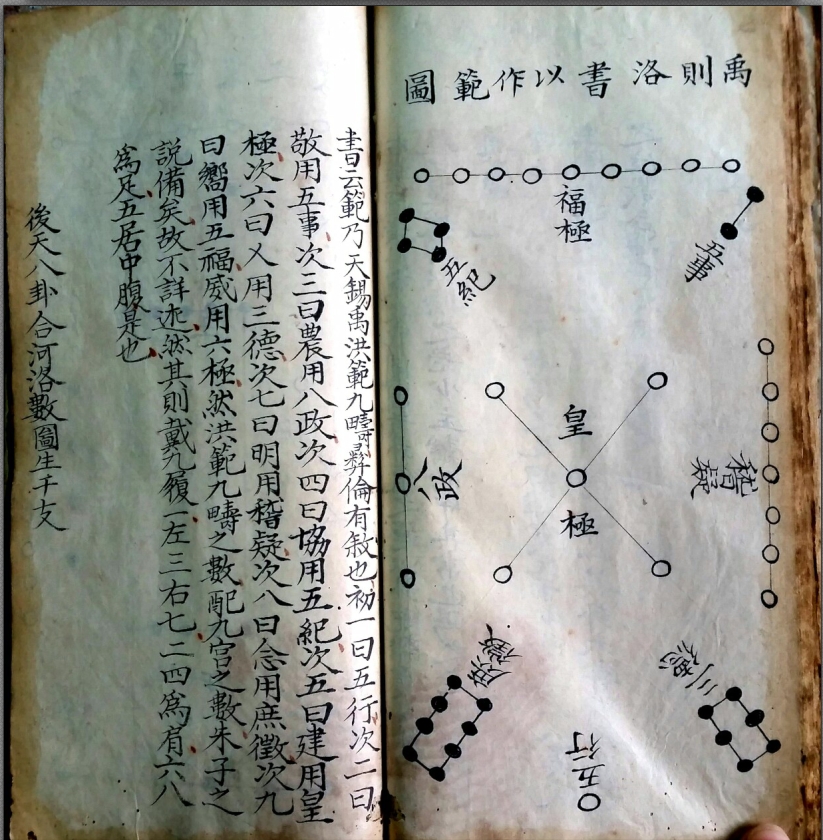 禹則洛書以作範圖
福極
五事
五紀
稽疑
皇極
八政
三德
五行
庶徵
書云範乃天錫禹洪範九疇彝倫有敘也初一曰五行次二曰
敬用五事次三曰農用八政次四曰協用五紀次五曰建用皇
極次六曰乂用三德次七曰明用稽疑次八曰念用庶徵次九
曰嚮用五福威用六極然洪範九疇之數配九宮之數朱子之
說備矣故不詳述然其則戴九履一左三右七二四為肩六八
為足五居中腹是也
後天八卦合河洛數圖生干支